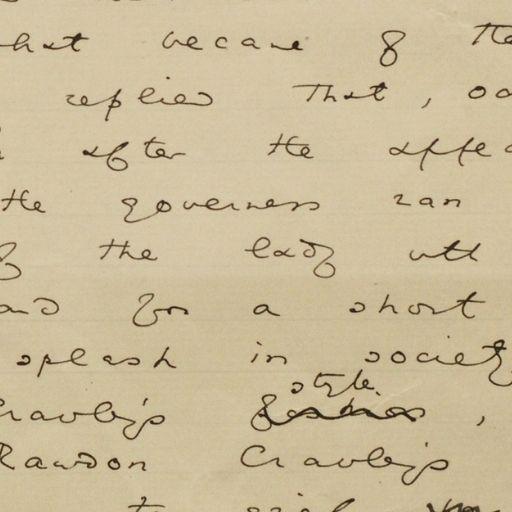 what became of the
replied that, od
after the appea
the governess ran
of the lady with
and for a short
splash in society
style
Crawley's ,
Rawdon Crawley's
to